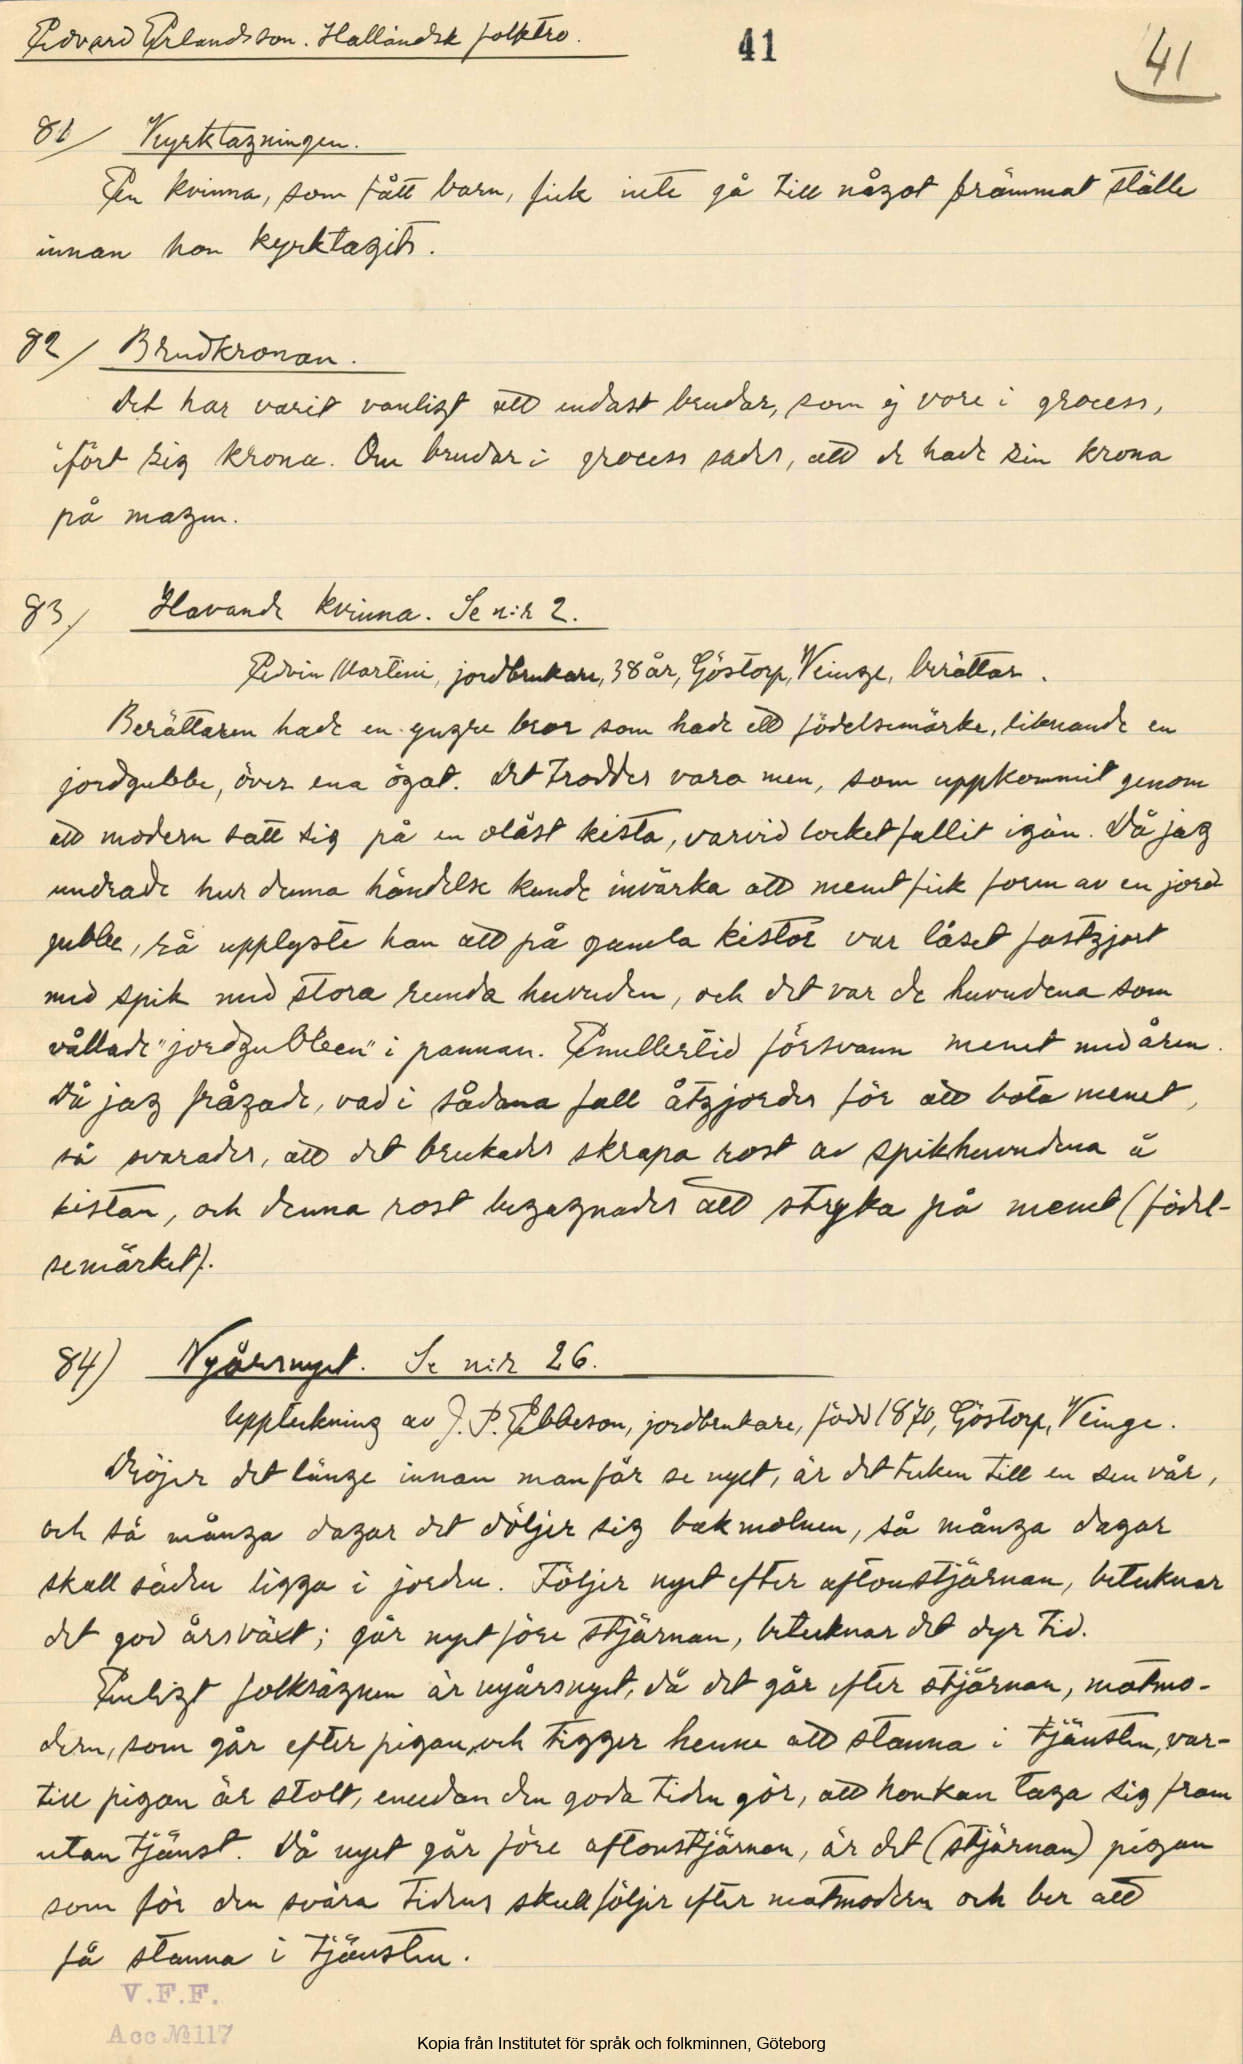 Edvard Erlandsson. Halländsk folktro.
41
41
81/ Kyrktagningen.
En kvinna, som fått barn, fick inte gå till något främmat ställe
innan hon kyrktagits.
82/ Brudkronan.
Det har varit vanligt att endast brudar, som ej vore i grocess,
ifört sig krona. Om brudar i grocess sades, att de hade sin krona
på magen.
83/ Havande kvinna. Se n:r 2.
Edvin Martini, jordbrukare, 38 år, Göstorp, Veinge, berättar.
Berättaren hade en yngre bror som hade ett födelsemärke, liknande en
jordgubbe, över ena ögat. Det troddes vara men, som uppkommit genom
att modern satt sig på en olåst kista, varvid locket fallit igän. Då jag
undrade hur denna händelse kunde invärka att menet fick form av en jord
gubbe, så upplyste han att på gamla kistor var låset fastgjort
med spik med stora runda huvuden, och det var de huvudena som
vållade "jordgubben" i pannan. Emellertid försvann menet med åren.
Då jag frågade, vad i sådana fall åtgjordes för att bota menet,
så svarades, att det brukades skrapa rost av spikhuvudena å
kistan, och denna rost begagnades att stryka på menet (födel-
semärket).
84) Nyårsnyet. Se n:r 26.
Uppteckning av J. P. Ebbeson, jordbrukare, född 1870, Göstorp, Veinge.
Dröjer det länge innan man får se nyet, är det tecken till en sen vår,
och så många dagar det döljer sig bak molnen, så många dagar
skall säden ligga i jorden. Följer nyet efter aftonstjärnan, betecknar
det god årsväxt; går nyet före stjärnan, betecknar det dyr tid.
Enligt folksägnen är nyårsnyet, då det går efter stjärnan, matmo-
dern, som går efter pigan, och tigger henne att stanna i tjänsten, var-
till pigan är stolt, emedan den goda tiden gör, att hon kan taga sig fram
utan tjänst. Då nyet går före aftonstjärnan, är det (stjärnan) pigan
som för den svåra tidens skull följer efter matmodern och ber att
få stanna i tjänsten.
V.F.F.
Acc № 117
Kopia från Institutet för språk och folkminnen, Göteborg